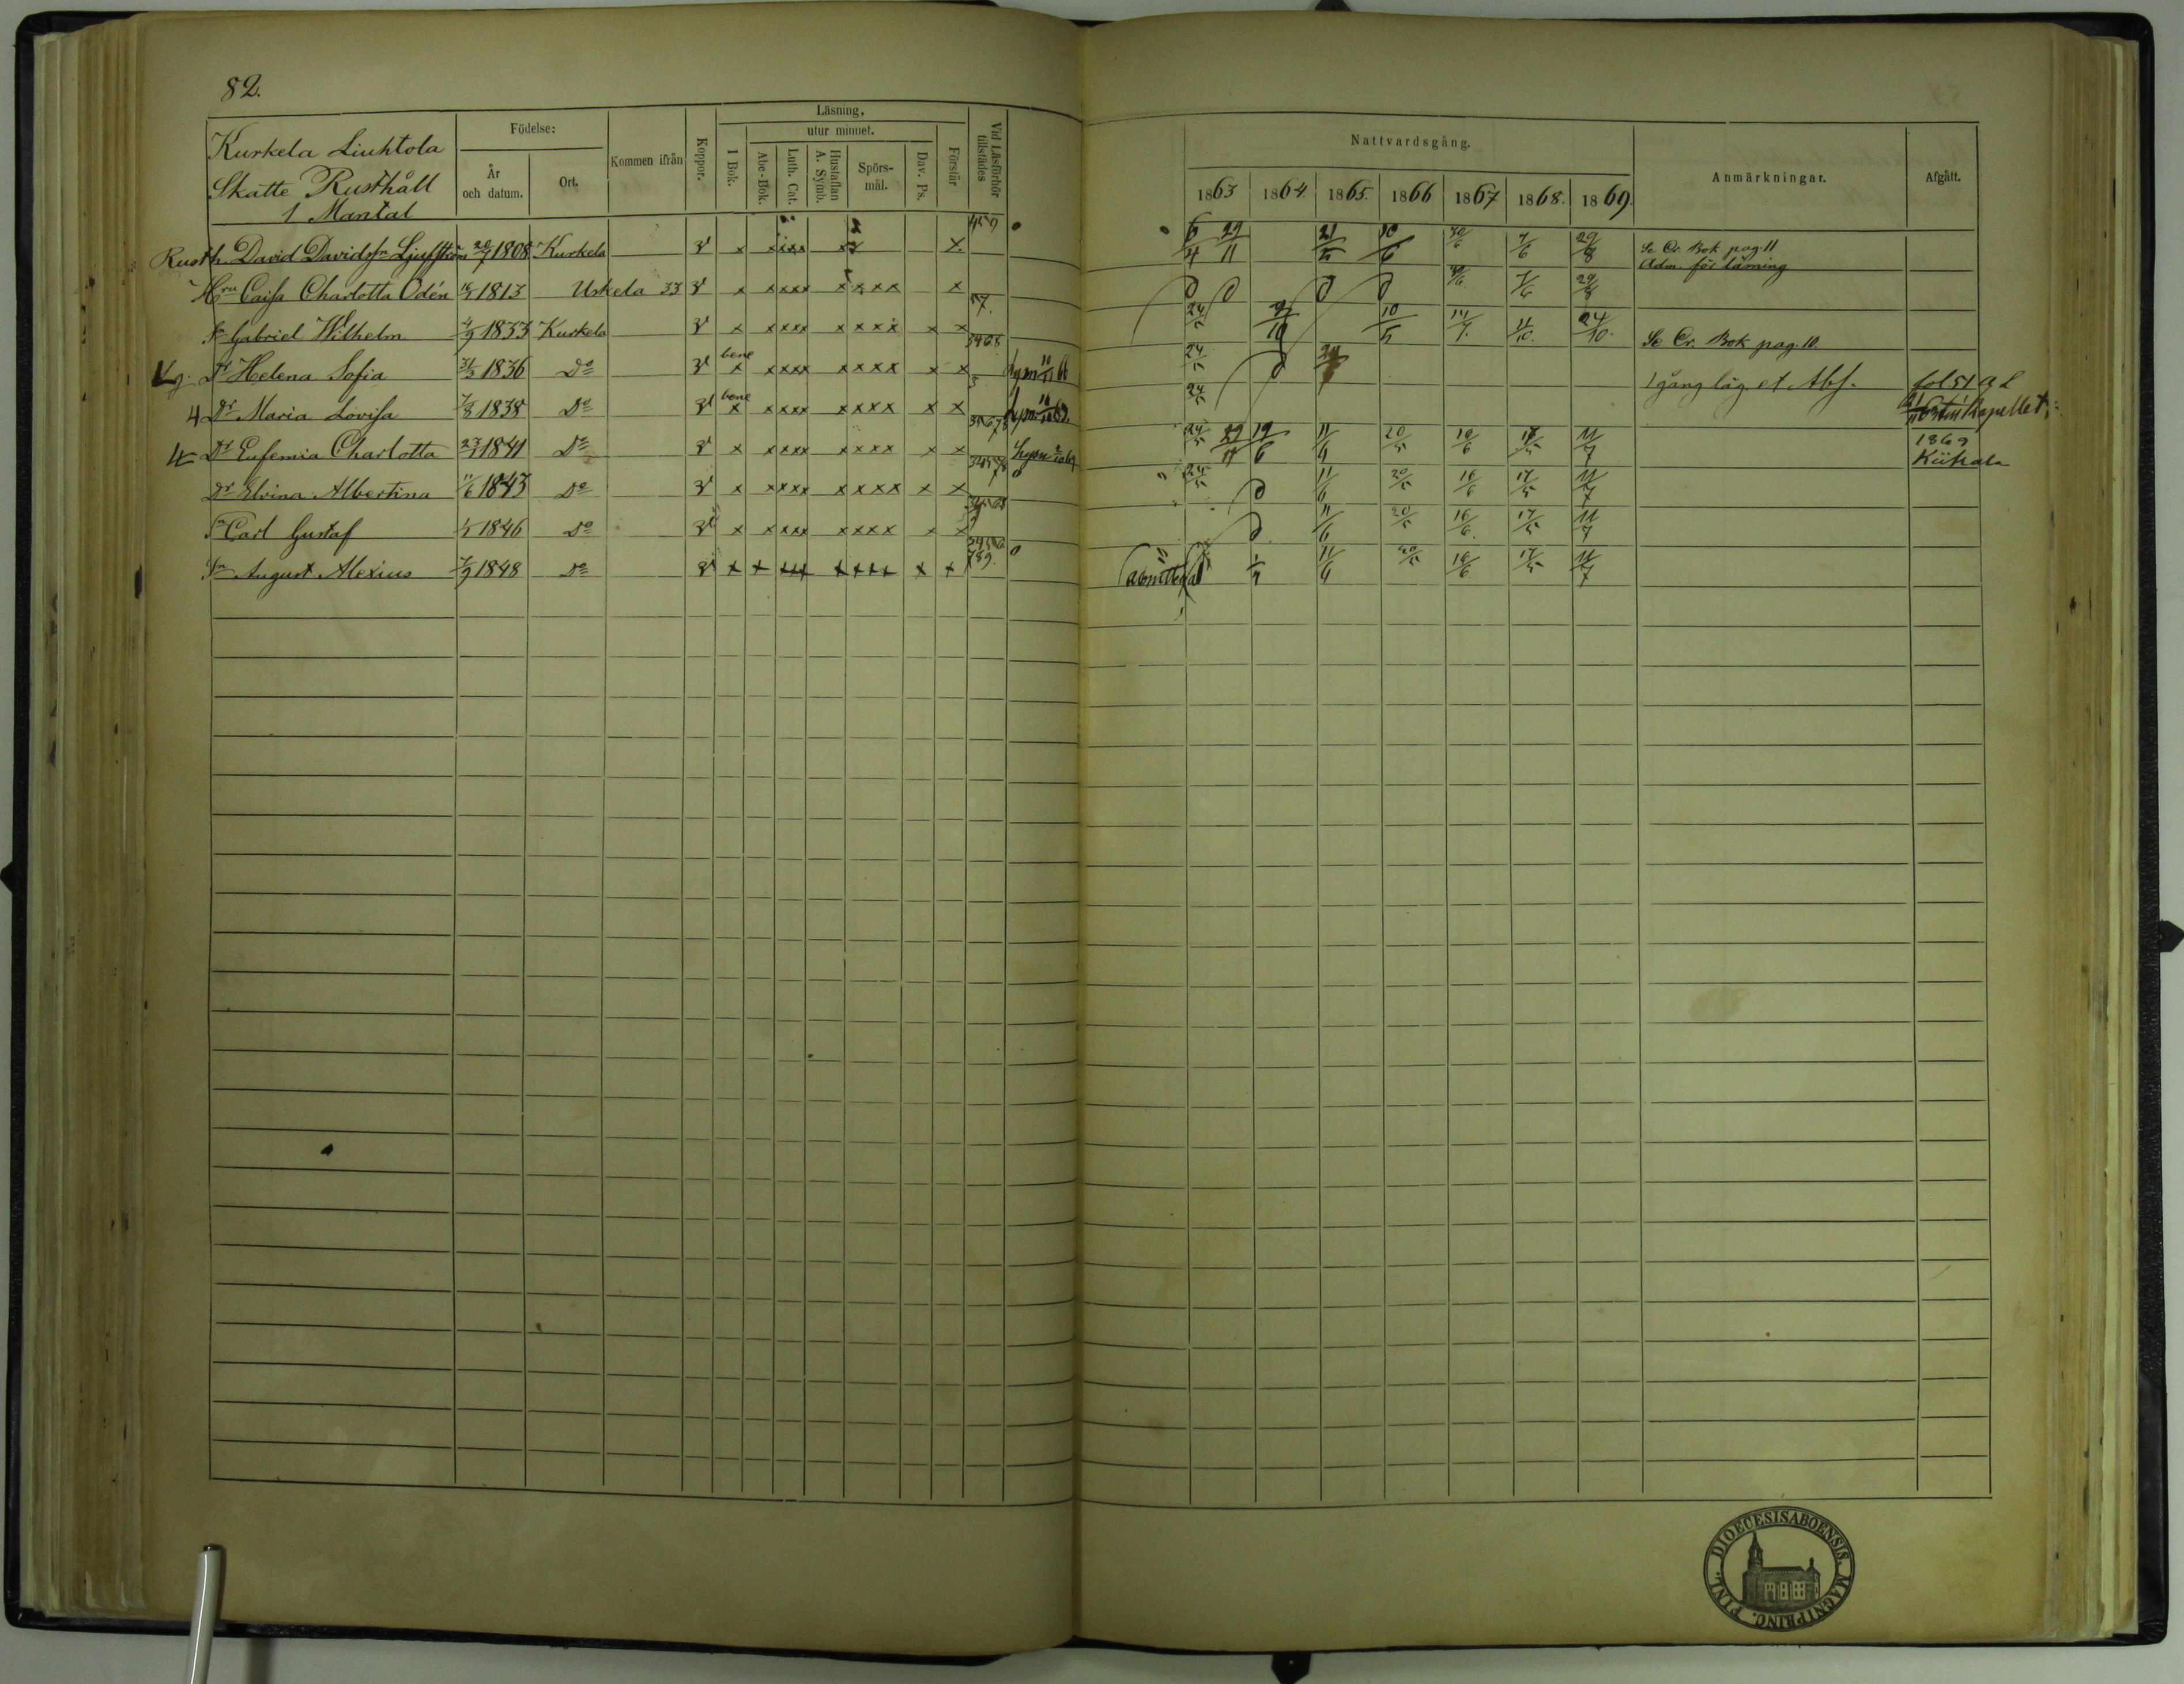 82.
Kurkela Liuhtola
Skatte Rusthåll
1 Mantal
Födelse:
År och datum.
Ort.
Kommen ifrån
Koppor.
Läsning,
utur minnet.
I Bok.
Abc-Bok.
Luth. Cat.
Hustaflan A. Symb.
Spörs-mål.
Dav. Ps.
Förstår
Vid Läsförhör tillstädes
Nattvardsgång.
1863 1864. 1865. 1866 1867 1868. 1869.
Anmärkningar.
Afgått.
Rusth. David Davidsson 20/7 1808 Kurkela x x x 459 21/5 10/6 30/6 7/6 29/8 Se Cr. Bok pag. 11
Adm. för läsning
Hru Caisa Charlotta Odén 1813 Urkela 33 x xxxx xxxx x 57. 30/6 7/6 29/8
Sn Gabriel Wilhelm 4/9 1833 Kurkela x xxxx xxxx x x 24/5 10/5 14/7. 4/10. 24/10. Se Cr. Bok pag. 10.
Dr Helena Sofia 31/3 1836 Do bene x xxxx xxxx x x 24/5 1 gång läg. et Abs. fol 51
4 Dr Maria Lovisa 7/8 1838 Do bene x xxxx xxxx x x 24/5 Kapellet
Dr Eufemia Charlotta 23/1 1841 Do x xxxx xxxx x x 24/5 29/11 19/6 11/6 20/5 16/6 17/5 11/7 1869 Kiikala
Dr Elvina Albertina 11/6 1843 Do x xxxx xxxx x x 24/5 11/6 20/5 16/6 17/5 11/7
Sn Carl Gustaf 1846 Do x xxxx xxxx x x 11/6 20/5 16/6 17/5 11/7
Sn August Alexius 7/9 1848 Do x x xxx xxxx x x 789. 11/6 20/5 16/6 17/5 11/7
DIOECESIS ABOENSIS. MAGNI PRINC. FINL.